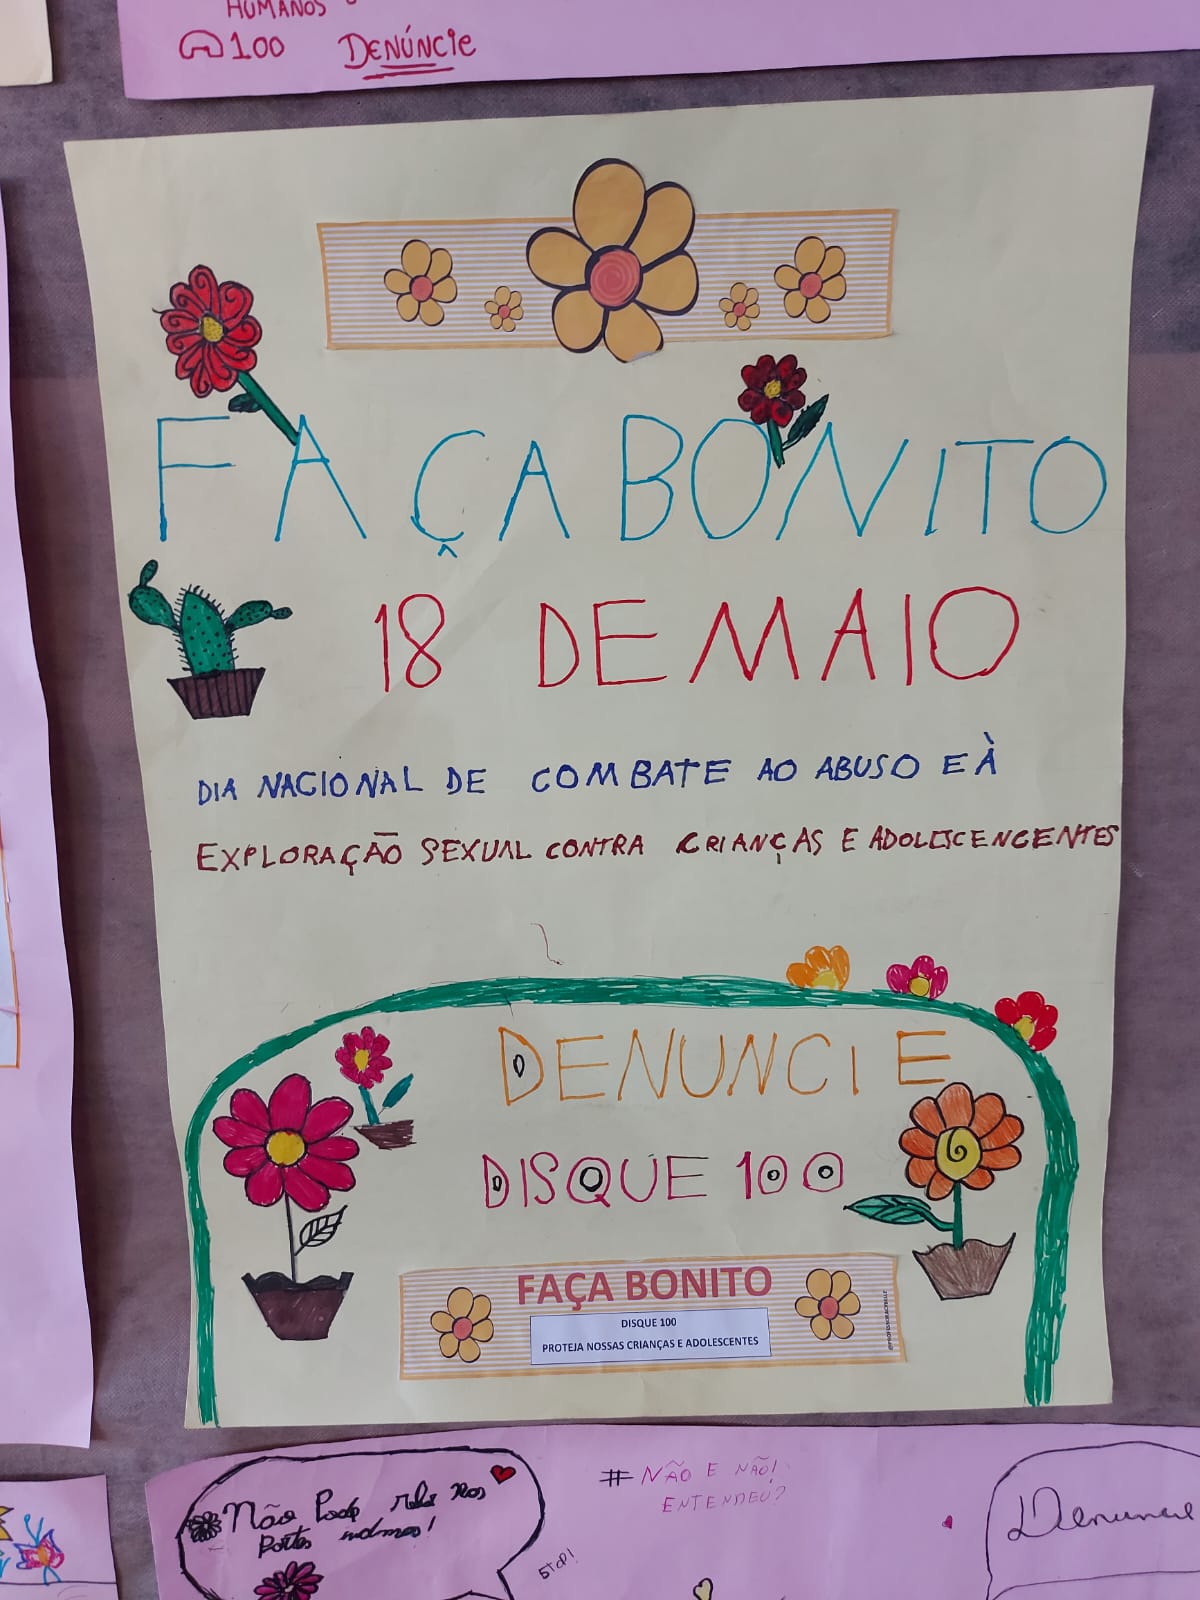 HUMANOS
100 DENÚNCIE
FAÇA BONITO
18 DE MAIO
DIA NACIONAL DE COMBATE AO ABUSO E À
EXPLORAÇÃO SEXUAL CONTRA CRIANÇAS E ADOLESCENCENTES
DENUNCIE
DISQUE 100
FAÇA BONITO
DISQUE 100
PROTEJA NOSSAS CRIANÇAS E ADOLESCENTES
Não Pode
Partes
#NÃO E NÃO!
ENTENDEU?
STOP!
Denuncie